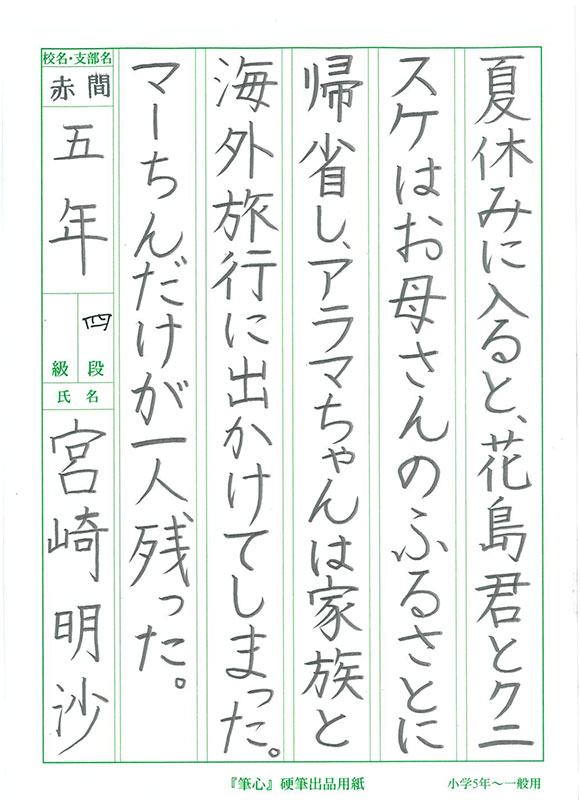 夏休みに入ると、花島君とクニ
スケはお母さんのふるさとに
帰省し、アラマちゃんは家族と
海外旅行に出かけてしまった。
マーちんだけが一人、残った。
校名・支部名
赤間
五年
四段
級
氏名
宮崎明沙
『筆心』硬筆出品用紙
小学5年〜一般用